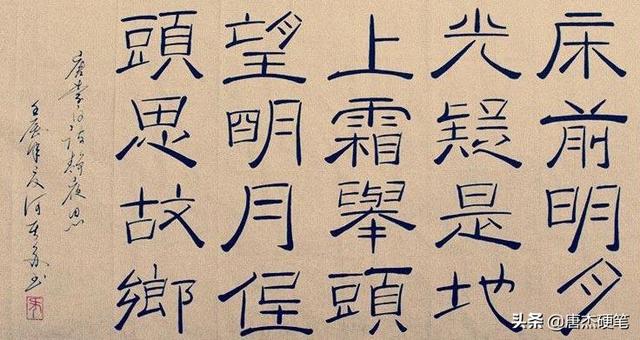 床前明月
光疑是地
上霜舉頭
望明月低
頭思故鄉
唐李白诗靜夜思
壬辰年夏
头条 @唐杰硬笔